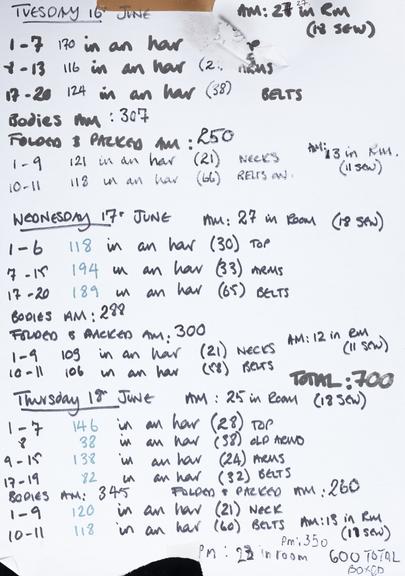 TUESDAY 16 JUNE AM: 27 in Rm (18 SEW)
1-7 170 in an har
8-13 116 in an har ARMS
17-20 124 in an har (38) BELTS
Bodies AM: 307
FOLDED & PACKED AM: 250
1-9 121 in an har (21) NECKS AM: 13 in RM. (11 SEW)
10-11 118 in an har (66) BELTS
WEDNESDAY 17 JUNE AM: 27 in Room (18 SEW)
1-6 118 in an har (30) TOP
7-15 194 in an har (33) ARMS
17-20 189 in an har (65) BELTS
BODIES AM: 288
FOLDED & PACKED AM: 300
1-9 109 in an har (21) NECKS AM: 12 in RM (11 SEW)
10-11 106 in an har BELTS
TOTAL: 700
Thursday 18 JUNE AM: 25 in Room (18 SEW)
1-7 146 in an har (28) TOP
8 38 in an har (38) OLD ARMS
9-15 138 in an har (24) ARMS
17-19 82 in an har (32) BELTS
BODIES AM: 345 FOLDED & PACKED AM: 260
1-9 120 in an har (21) NECK
10-11 118 in an har (60) BELTS AM: 13 in RM
Pm: 350
Pm: in room 600 TOTAL BOXED